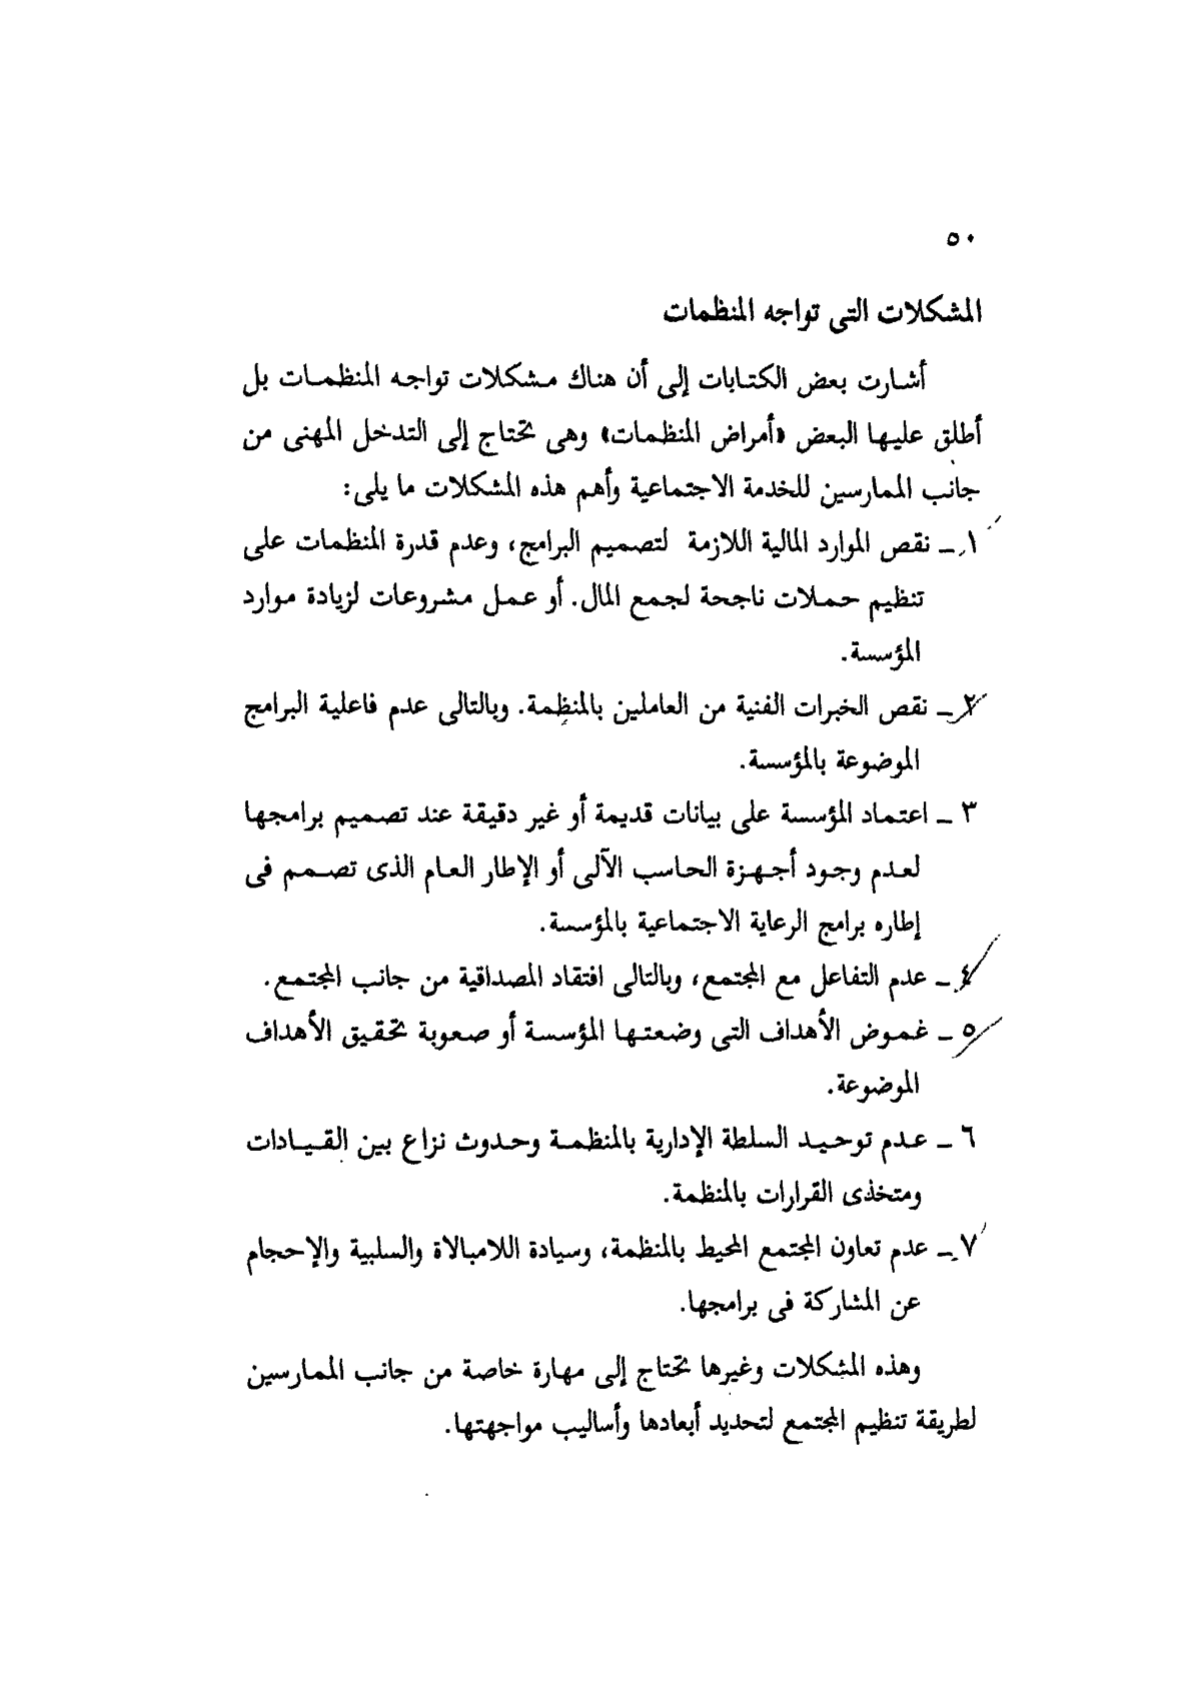 ٥٠
المشكلات التى تواجه المنظمات
أشارت بعض الكتابات إلى أن هناك مشكلات تواجه المنظمات بل
أطلق عليها البعض «أمراض المنظمات» وهى تحتاج إلى التدخل المهنى من
جانب الممارسين للخدمة الاجتماعية وأهم هذه المشكلات ما يلى:
١ ـ نقص الموارد المالية اللازمة لتصميم البرامج، وعدم قدرة المنظمات على
تنظيم حملات ناجحة لجمع المال. أو عمل مشروعات لزيادة موارد
المؤسسة.
٢ ـ نقص الخبرات الفنية من العاملين بالمنظمة. وبالتالى عدم فاعلية البرامج
الموضوعة بالمؤسسة.
٣ ـ اعتماد المؤسسة على بيانات قديمة أو غير دقيقة عند تصميم برامجها
لعدم وجود أجهزة الحاسب الآلى أو الإطار العام الذى تصمم فى
إطاره برامج الرعاية الاجتماعية بالمؤسسة.
٤ ـ عدم التفاعل مع المجتمع، وبالتالى افتقاد المصداقية من جانب المجتمع.
٥ ـ غموض الأهداف التى وضعتها المؤسسة أو صعوبة تحقيق الأهداف
الموضوعة.
٦ ـ عدم توحيد السلطة الإدارية بالمنظمة وحدوث نزاع بين القيادات
ومتخذى القرارات بالمنظمة.
٧ ـ عدم تعاون المجتمع المحيط بالمنظمة، وسيادة اللامبالاة والسلبية والإحجام
عن المشاركة فى برامجها.
وهذه المشكلات وغيرها تحتاج إلى مهارة خاصة من جانب الممارسين
لطريقة تنظيم المجتمع لتحديد أبعادها وأساليب مواجهتها.